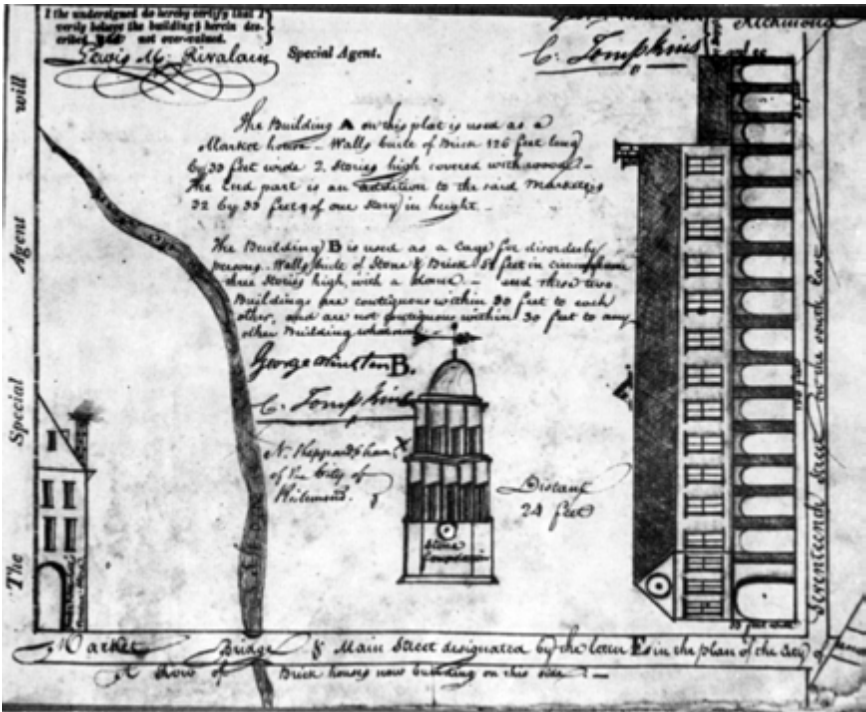 I the undersigned do hereby certify that I
verily believe the buildings herein des-
cribed not over-valued.
Lewis M. Rivalain Special Agent.
C. Tompkins
Richmond
The Special Agent will
The Building A on this plat is used as a
Market house – Walls built of Brick 126 feet long
by 33 feet wide 2 Stories high covered with wood –
The End part is an addition to the said Market is
32 by 33 feet & of one Story in height –
The Building B is used as a Cage for disorderly
persons – Walls built of Stone & Brick feet in
three Stories high, with a dome – and these two
Buildings are contiguous within 30 feet to each
other, and are not contiguous within 30 feet to any
other Building
George Winston B.
C. Tompkins
of the City of
Richmond.
Distant
24 feet
Stone
Seventeenth Street on the south East
Market Bridge & Main Street designated by the letter E in the plan of the City of
A Row of Brick houses now building on this side –